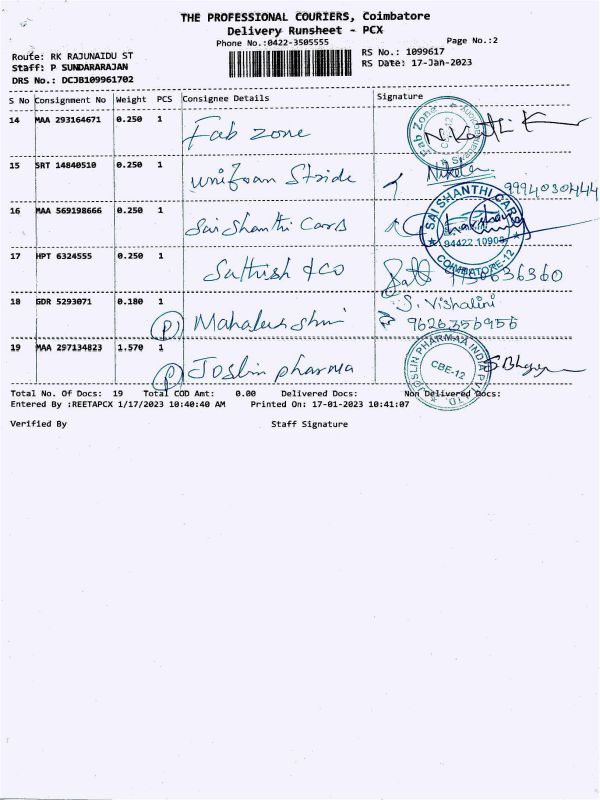 THE PROFESSIONAL COURIERS, Coimbatore
Delivery Runsheet - PCX
Phone No.:0422-3505555
Page No.:2
Route: RK RAJUNAIDU ST
RS No.: 1099617
Staff: P SUNDARARAJAN
RS Date: 17-Jan-2023
DRS No.: DCJB109961702
S No Consignment No Weight PCS Consignee Details Signature
14 MAA 293164671 0.250 1 Fab Zone
Fab Zone
15 SRT 14840510 0.250 1 Uniform Stride
9994030444
16 MAA 569198666 0.250 1 Sai Shanthi Cars
SAI SHANTHI CARS
94422 10906
COIMBATORE-12
17 HPT 6324555 0.250 1 Sathish & Co
18 GDR 5293071 0.180 1 (P) Mahalakshmi
S. Vishalini
9626356956
19 MAA 297134823 1.570 1 (P) Joslin pharma
JOSLIN PHARMAA INDIA PVT. LTD.
CBE-12
Total No. Of Docs: 19 Total COD Amt: 0.00 Delivered Docs: Non Delivered Docs:
Entered By :REETAPCX 1/17/2023 10:40:40 AM Printed On: 17-01-2023 10:41:07
Verified By Staff Signature